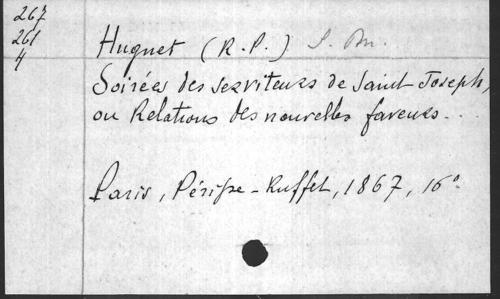 267
261
4
Huguet (R. P.) S. M.
Soirées des serviteurs de Saint Joseph,
ou Relations des nouvelles faveurs...
Paris, Périsse-Ruffet, 1867, 16°